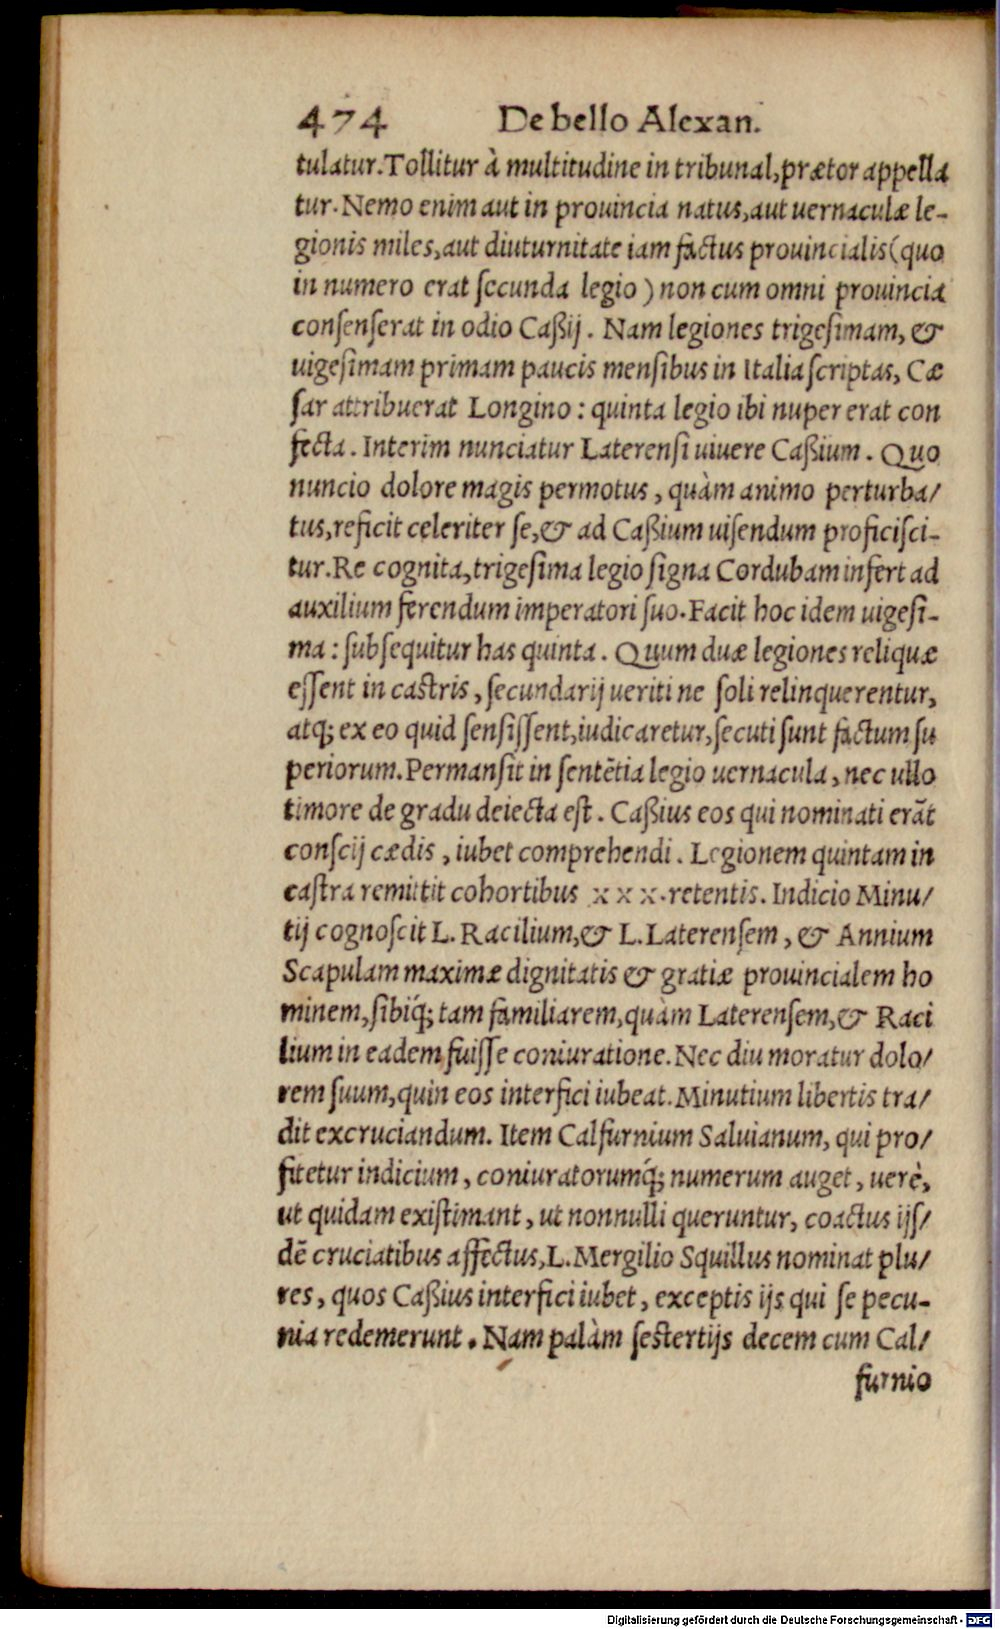 474 De bello Alexan.
tulatur. Tollitur à multitudine in tribunal, prætor appella
tur. Nemo enim aut in prouincia natus, aut uernaculæ le-
gionis miles, aut diuturnitate iam factus prouincialis (quo
in numero erat ſecunda legio) non cum omni prouincia
conſenſerat in odio Caßij. Nam legiones trigeſimam, &
uigeſimam primam paucis menſibus in Italia ſcriptas, Cæ
ſar attribuerat Longino: quinta legio ibi nuper erat con
fecta. Interim nunciatur Laterenſi uiuere Caßium. Quo
nuncio dolore magis permotus, quàm animo perturba/
tus, reficit celeriter ſe, & ad Caßium uiſendum proficiſci-
tur. Re cognita, trigeſima legio ſigna Cordubam infert ad
auxilium ferendum imperatori ſuo. Facit hoc idem uigeſi-
ma: ſubſequitur has quinta. Quum duæ legiones reliquæ
eſſent in caſtris, ſecundarij ueriti ne ſoli relinquerentur,
atq; ex eo quid ſenſiſſent, iudicaretur, ſecuti ſunt factum ſu
periorum. Permanſit in ſentẽtia legio uernacula, nec ullo
timore de gradu deiecta eſt. Caßius eos qui nominati erãt
conſcij cædis, iubet comprehendi. Legionem quintam in
caſtra remittit cohortibus xxx. retentis. Indicio Minu/
tij cognoſcit L. Racilium, & L. Laterenſem, & Annium
Scapulam maximæ dignitatis & gratiæ prouincialem ho
minem, ſibiq́; tam familiarem, quàm Laterenſem, & Raci
lium in eadem fuiſſe coniuratione. Nec diu moratur dolo/
rem ſuum, quin eos interfici iubeat. Minutium libertis tra/
dit excruciandum. Item Calfurnium Saluianum, qui pro/
fitetur indicium, coniuratorumq́; numerum auget, uerè,
ut quidam exiſtimant, ut nonnulli queruntur, coactus ijſ/
dẽ cruciatibus affectus, L. Mergilio Squillus nominat plu/
res, quos Caßius interfici iubet, exceptis ijs qui ſe pecu-
nia redemerunt. Nam palàm ſeſtertijs decem cum Cal/
furnio
Digitalisierung gefördert durch die Deutsche Forschungsgemeinschaft - DFG